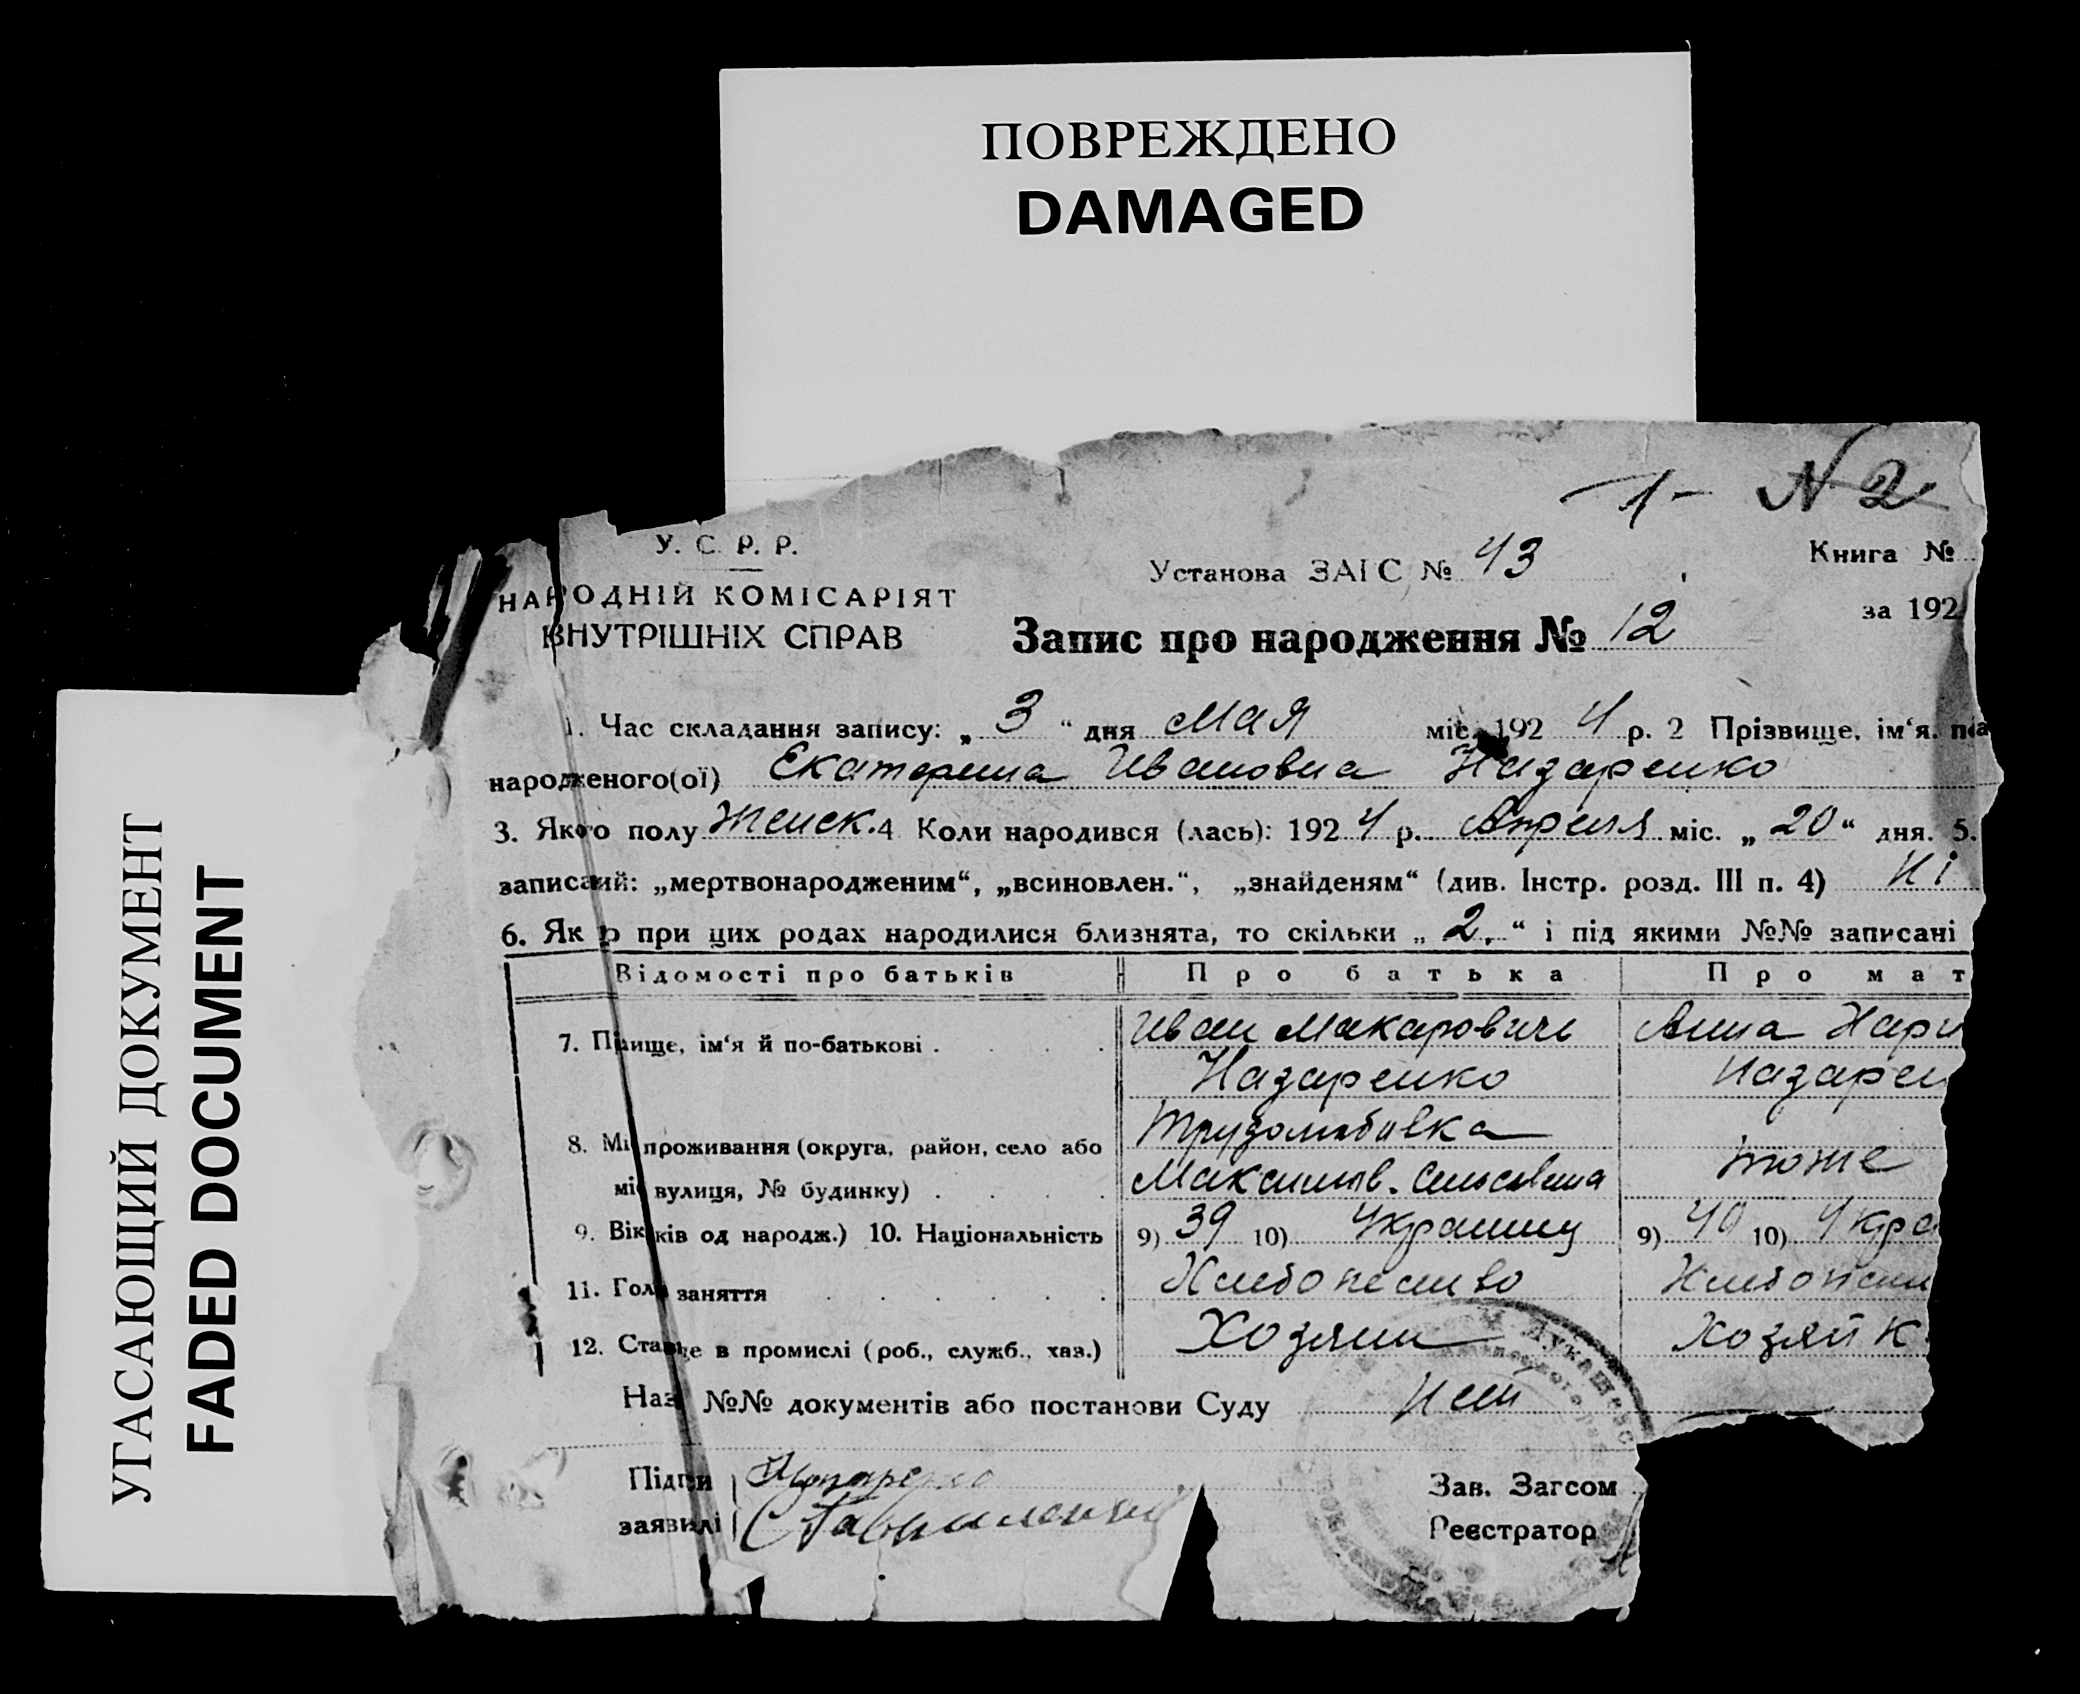 ПОВРЕЖДЕНО
DAMAGED
УГАСАЮЩИЙ ДОКУМЕНТ
FADED DOCUMENT
1- N 2
У. С. Р. Р.
НАРОДНІЙ КОМІСАРІЯТ
ВНУТРІШНІХ СПРАВ
Установа ЗАГС № 43
Книга №
за 192
Запис про народження № 12
1. Час складання запису: „ 3 “ дня мая міс. 192 4 р. 2 Прізвище, ім‘я, по
народженого(ої) Екатерина Ивановна Назаренко
3. Якого полу женск. 4 Коли народився (лась): 192 4 р. Апреля міс. „ 20 “ дня. 5.
записаний: „мертвонародженим“, „всиновлен.“, „знайденям“ (див. Інстр. розд. III п. 4) ні
6. Як при цих родах народилися близнята, то скільки „ 2. “ і під якими №№ записані
Відомості про батьків Про батька Про мат
7. П ище, ім‘я й по-батькові . . . . Иван Макарович Анна Хари
Назаренко Назарен
8. Мі проживання (округа, район, село або Трудолюбовка
мі вулиця, № будинку) . . . . Максимов. сельсовета тоже
9. Вік ків од народж.) 10. Національність 9) 39 10) Украинец 9) 40 10) Укра
11. Гол заняття . . . . . . Хлебопаство Хлебопаш
12. Ста ще в промислі (роб., служб., хаз.) Хозяин Хозяйк
Наз №№ документів або постанови Суду нет
Підпи
заявил і Гавриленко
Зав. Загсом
Реєстратор